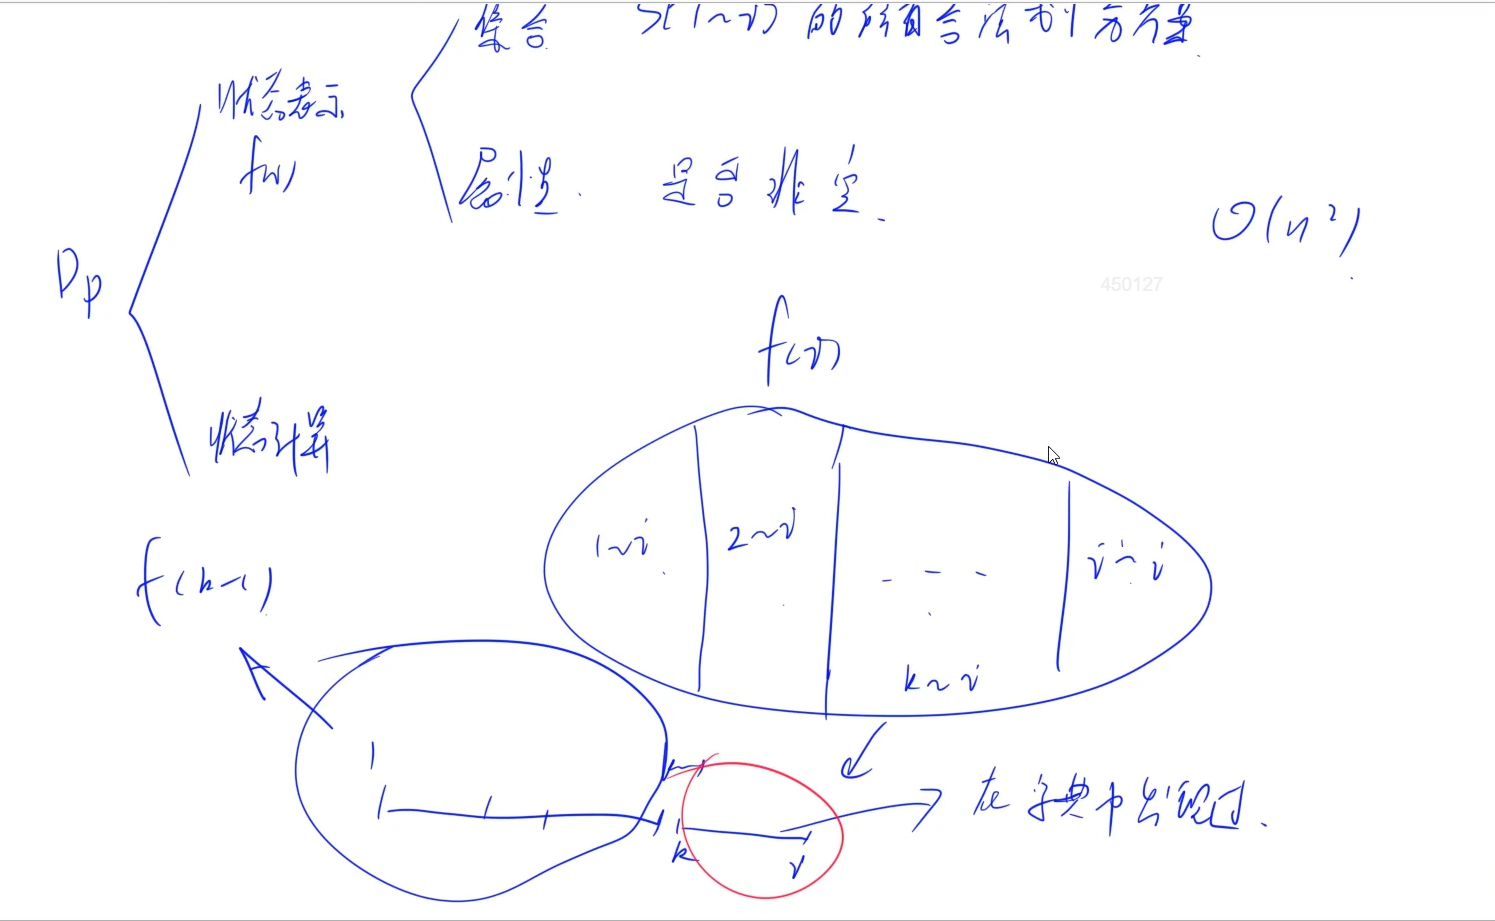 集合 S[1~i] 的所有合法划分方案.
状态表示
f(i)
属性. 是否非空.
O(n²).
450127
Dp
f(i)
状态计算
1~i 2~i - - - i~i
f(k-1)
k~i
1 k-1
在字典中出现过.
k i